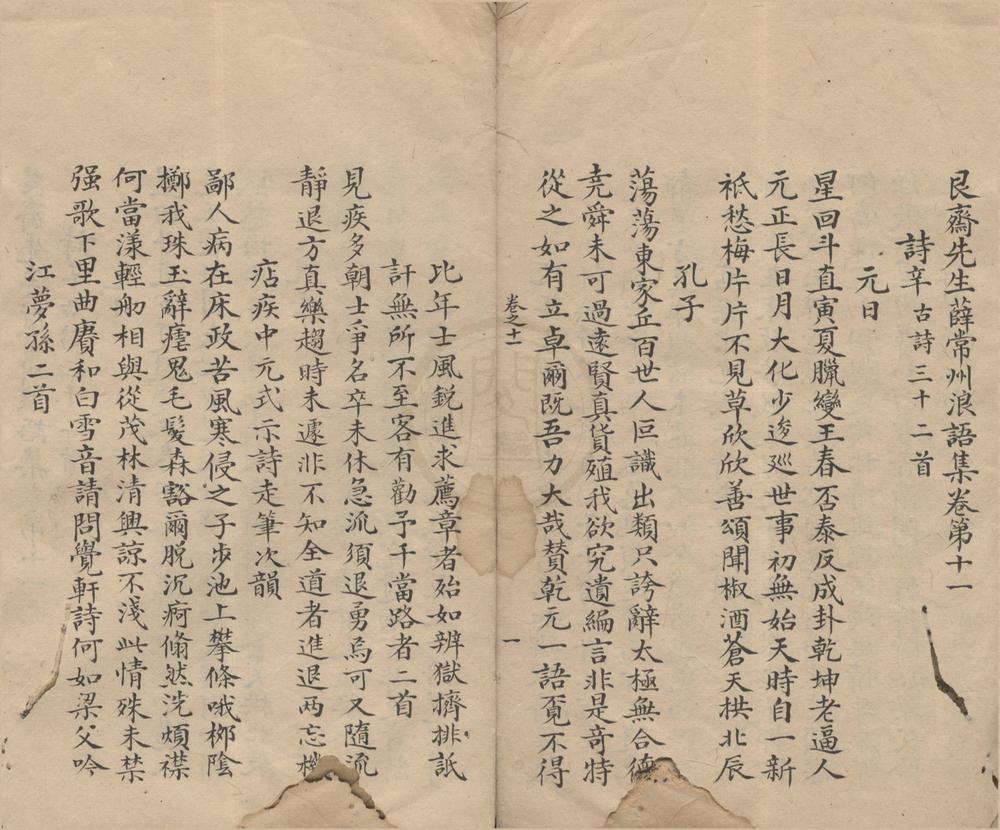 艮齋先生薛常州浪語集卷第十一
詩辛 古詩三十二首
元日
星回斗直寅夏臘變王春否泰反成卦乾坤老逼人
元正長日月大化少逡廵世事初無始天時自一新
祇愁梅片片不見草欣欣善頌聞椒酒蒼天拱北辰
孔子
蕩蕩東家丘百世人叵識出類只誇辭太極無合德
堯舜未可過遠賢真貨殖我欲究遺編言非是竒特
從之如有立卓爾既吾力大哉賛乾元一語覔不得
卷之十一
一
比年士風銳進求薦章者殆如辨獄擠排詆
訐無所不至客有勸予干當路者二首
見疾多朝士爭名卒未休急流須退勇烏可又隨流
靜退方真樂趨時未遽非不知全道者進退两忘機
痁疾中元式示詩走筆次韻
鄙人病在床政苦風寒侵之子步池上攀條哦栁陰
擲我珠玉辭瘧鬼毛髮森豁爾脫沉痾翛然洗煩襟
何當漾輕舠相與從茂林清興諒不淺此情殊未禁
强歌下里曲賡和白雪音請問覺軒詩何如梁父吟
江夢孫二首